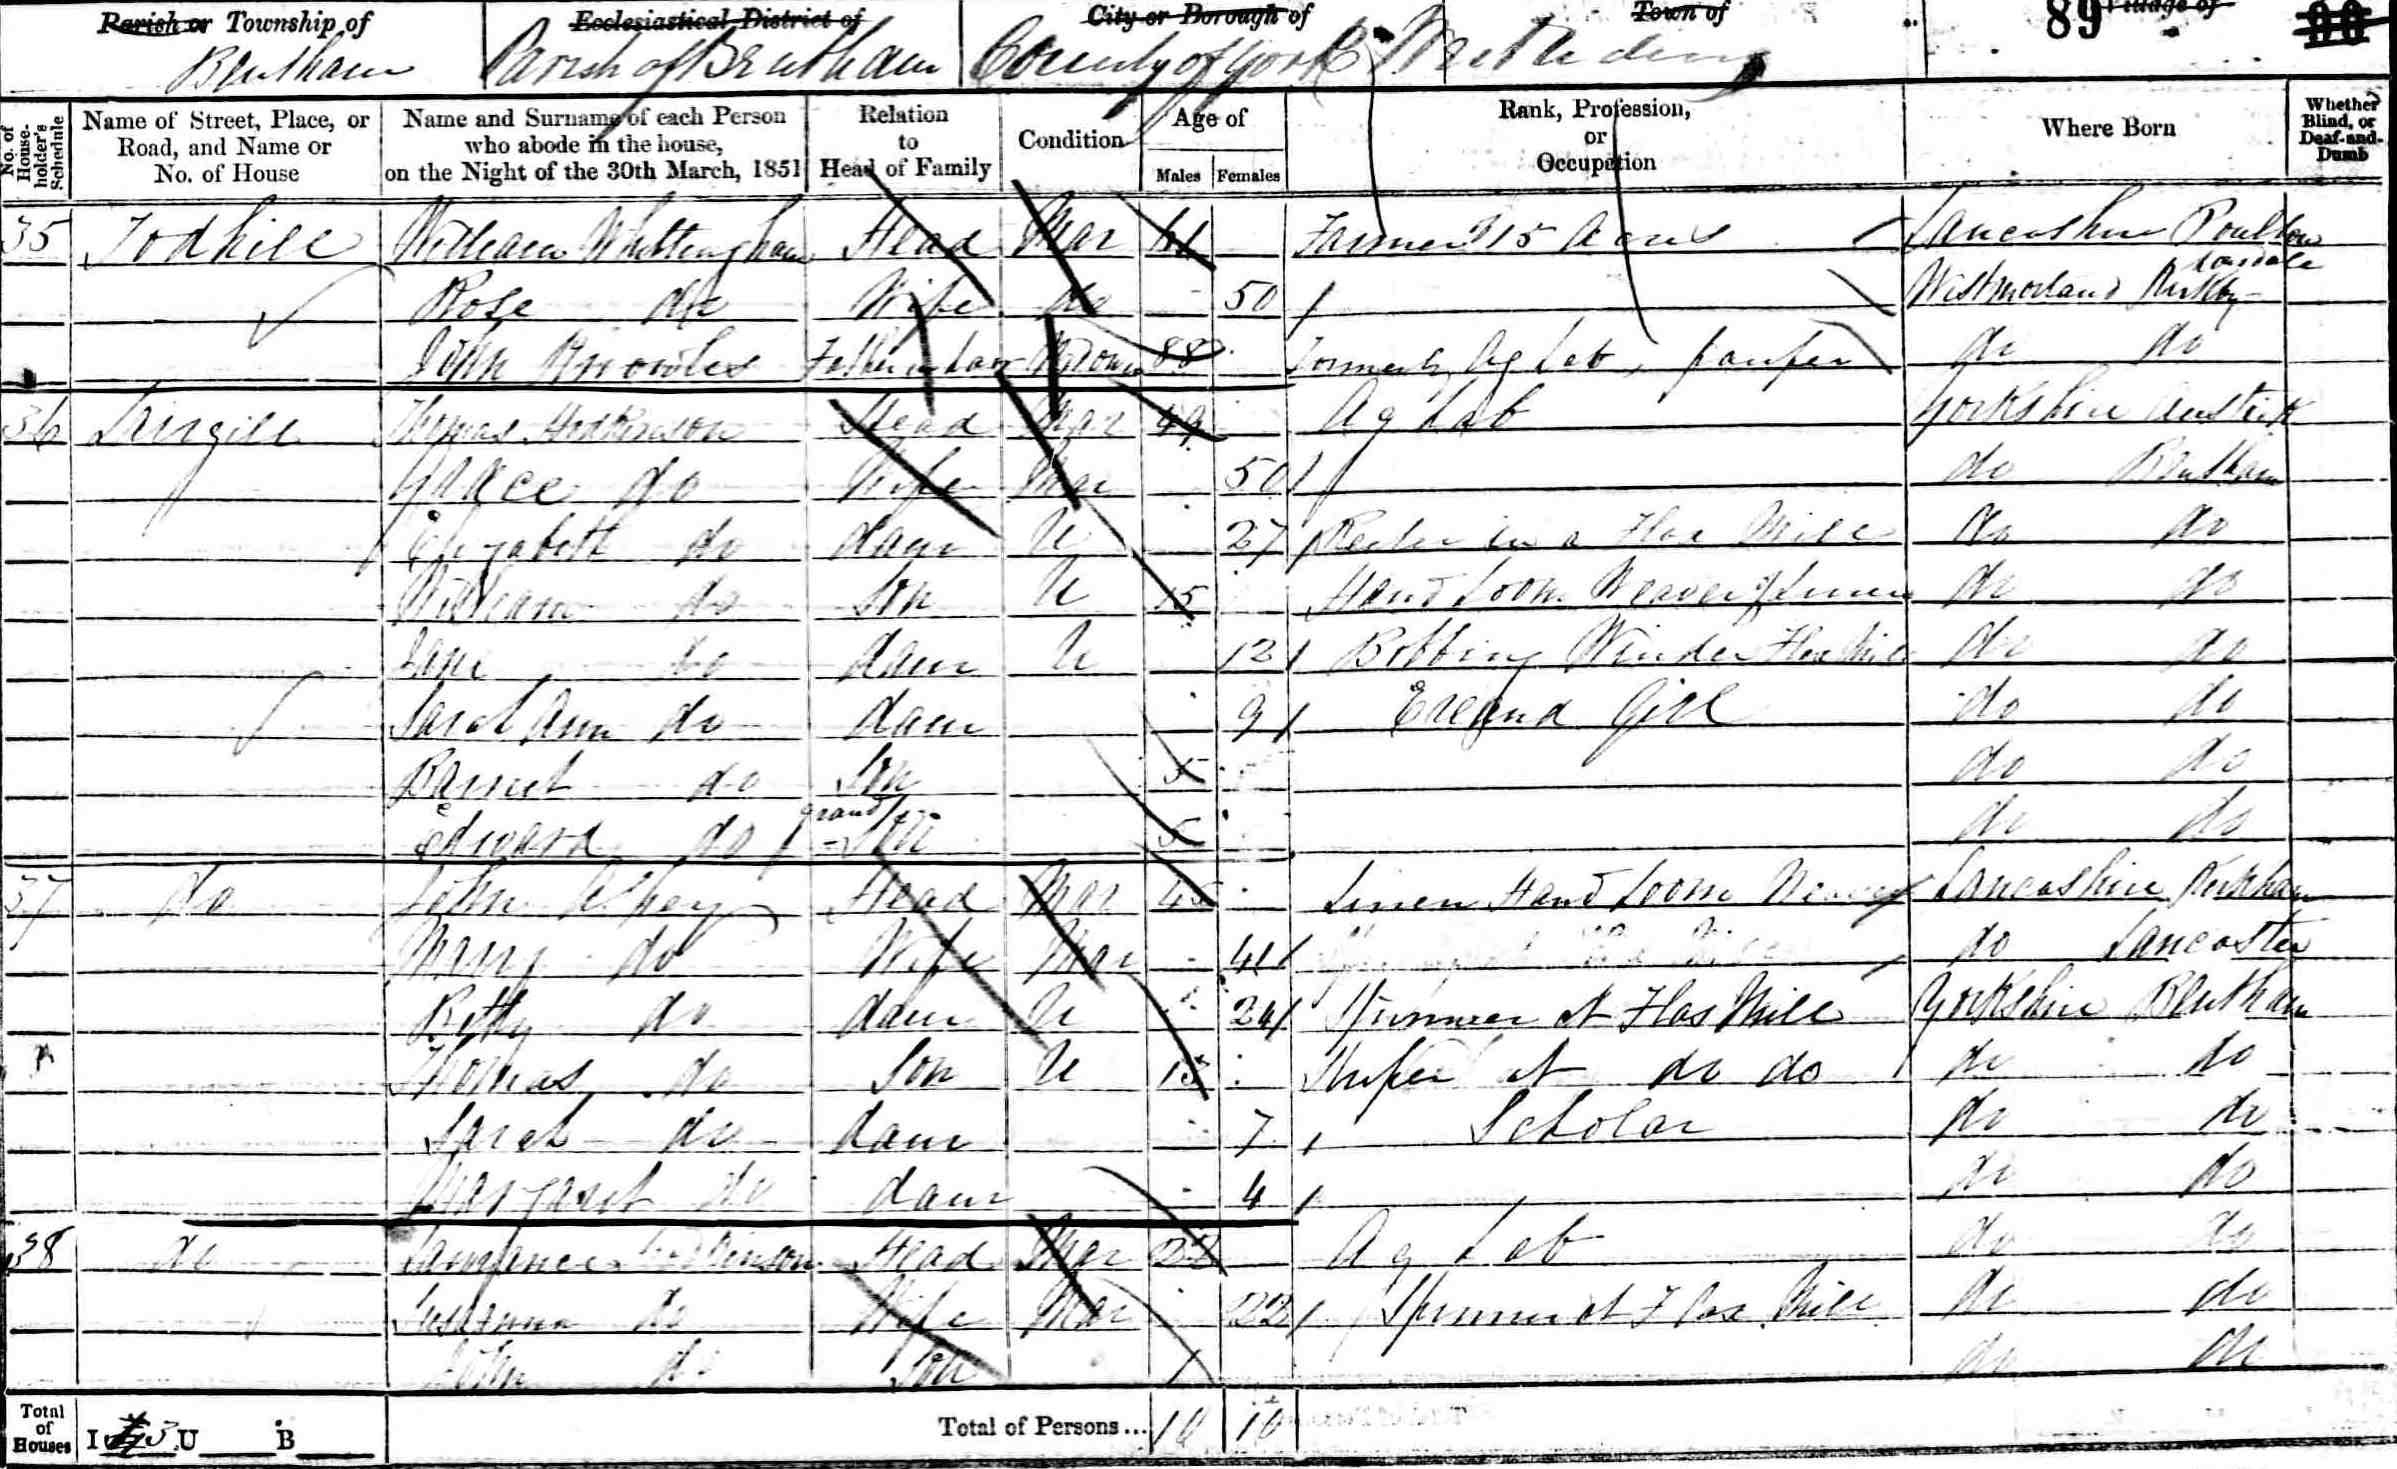 Parish or Township of Ecclesiastical District of City or Borough of Town of 89 Village of
Bentham Parish of Bentham County of York West Riding
No. of House-holder's Schedule Name of Street, Place, or Road, and Name or No. of House Name and Surname of each Person who abode in the house, on the Night of the 30th March, 1851 Relation to Head of Family Condition Age of Males Females Rank, Profession, or Occupation Where Born Whether Blind, or Deaf-and-Dumb
35 Todhill William Whittingham Head Mar 61 Farmer 15 Acres Lancashire Poulton
Rose do Wife do 50 Westmorland Kirkby lonsdale
John Knowles Father in Law Widower 88 Formerly Ag Lab, pauper do do
36 Lairgill Thomas Hodkinson Head Mar 49 Ag Lab Yorkshire Austick
Grace do Wife Mar 50 do Bentham
Elizabeth do daur U 27 Reeler in a Flax Mill do do
William do Son U 15 Hand Loom Weaver of Linen do do
Jane do daur U 12 Bobbing Winder Flax Mill do do
Sarah Ann do daur 9 Errand Girl do do
Barnet do Son 5 do do
Edward do grand Son 5 do do
37 do John Head Mar 45 Linen Hand Loom Weaver Lancashire Kirkham
Mary do Wife Mar 41 do Lancaster
Betty do daur U 24 Spinner at Flax Mill Yorkshire Bentham
Thomas do Son U 13 at do do do do
Sarah do daur 7 Scholar do do
Margaret do daur 4 do do
38 do Lawrance Hodkinson Head Mar 22 Ag Lab do do
Susanna do Wife Mar 22 Spinner at Flax Mill do do
John do Son 1 do do
Total of Houses I 3 U B Total of Persons... 10 10